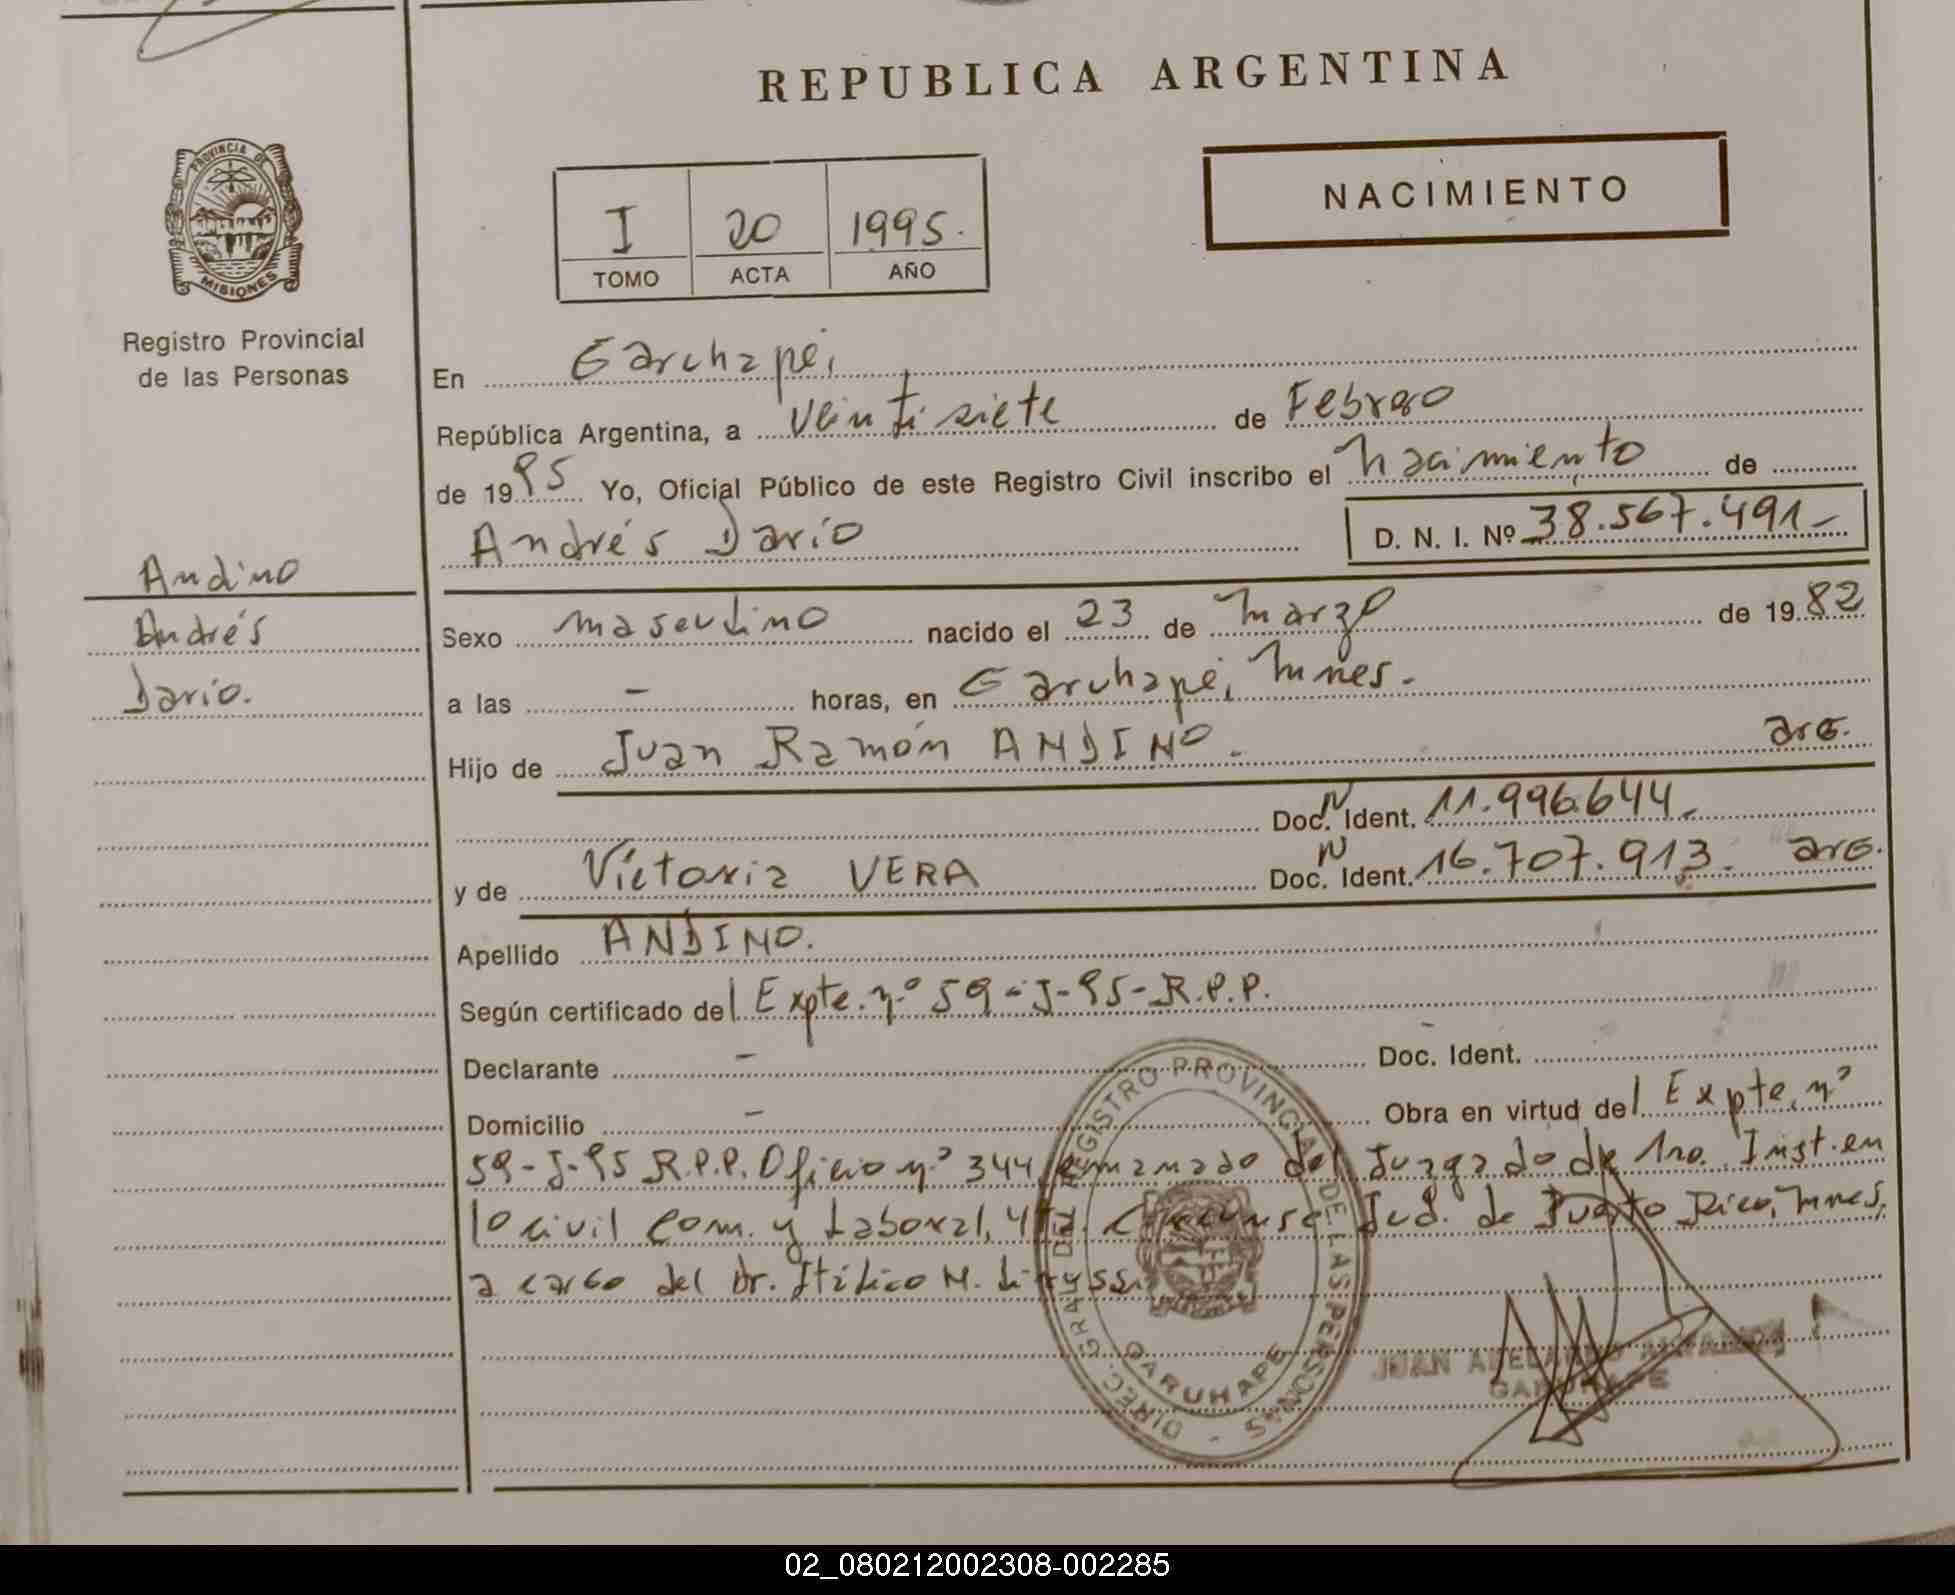 REPUBLICA ARGENTINA
PROVINCIA DE
MISIONES
Registro Provincial
de las Personas
NACIMIENTO
I 20 1995.
TOMO ACTA AÑO
En Garuhapé,
República Argentina, a veintisiete de Febrero
de 1995 Yo, Oficial Público de este Registro Civil inscribo el nacimiento de
Andrés Darío D. N. I. Nº 38.567.491-
Andino
Andrés
Darío.
Sexo masculino nacido el 23 de marzo de 1982
a las - horas, en Garuhapé, Mnes.
Hijo de Juan Ramón ANDINO. arg.
Doc. N Ident. 11.996.644.
y de Victoria VERA Doc. N Ident. 16.707.913. arg.
Apellido ANDINO.
Según certificado del Expte. nº 59-J-95-R.P.P.
Declarante - Doc. Ident. -
Domicilio - Obra en virtud del Expte. nº
59-J-95 R.P.P. Oficio nº 344 emanado del Juzgado de 1ra. Inst. en
lo civil Com. y Laboral, 4ta. Circunsc. Jud. de Puerto Rico, Mnes,
a cargo del Dr. Itálico M.
DIREC. GRAL. DEL REGISTRO PROVINCIAL DE LAS PERSONAS -
GARUHAPE
JUAN ABELARDO
GARUHAPE
02_080212002308-002285